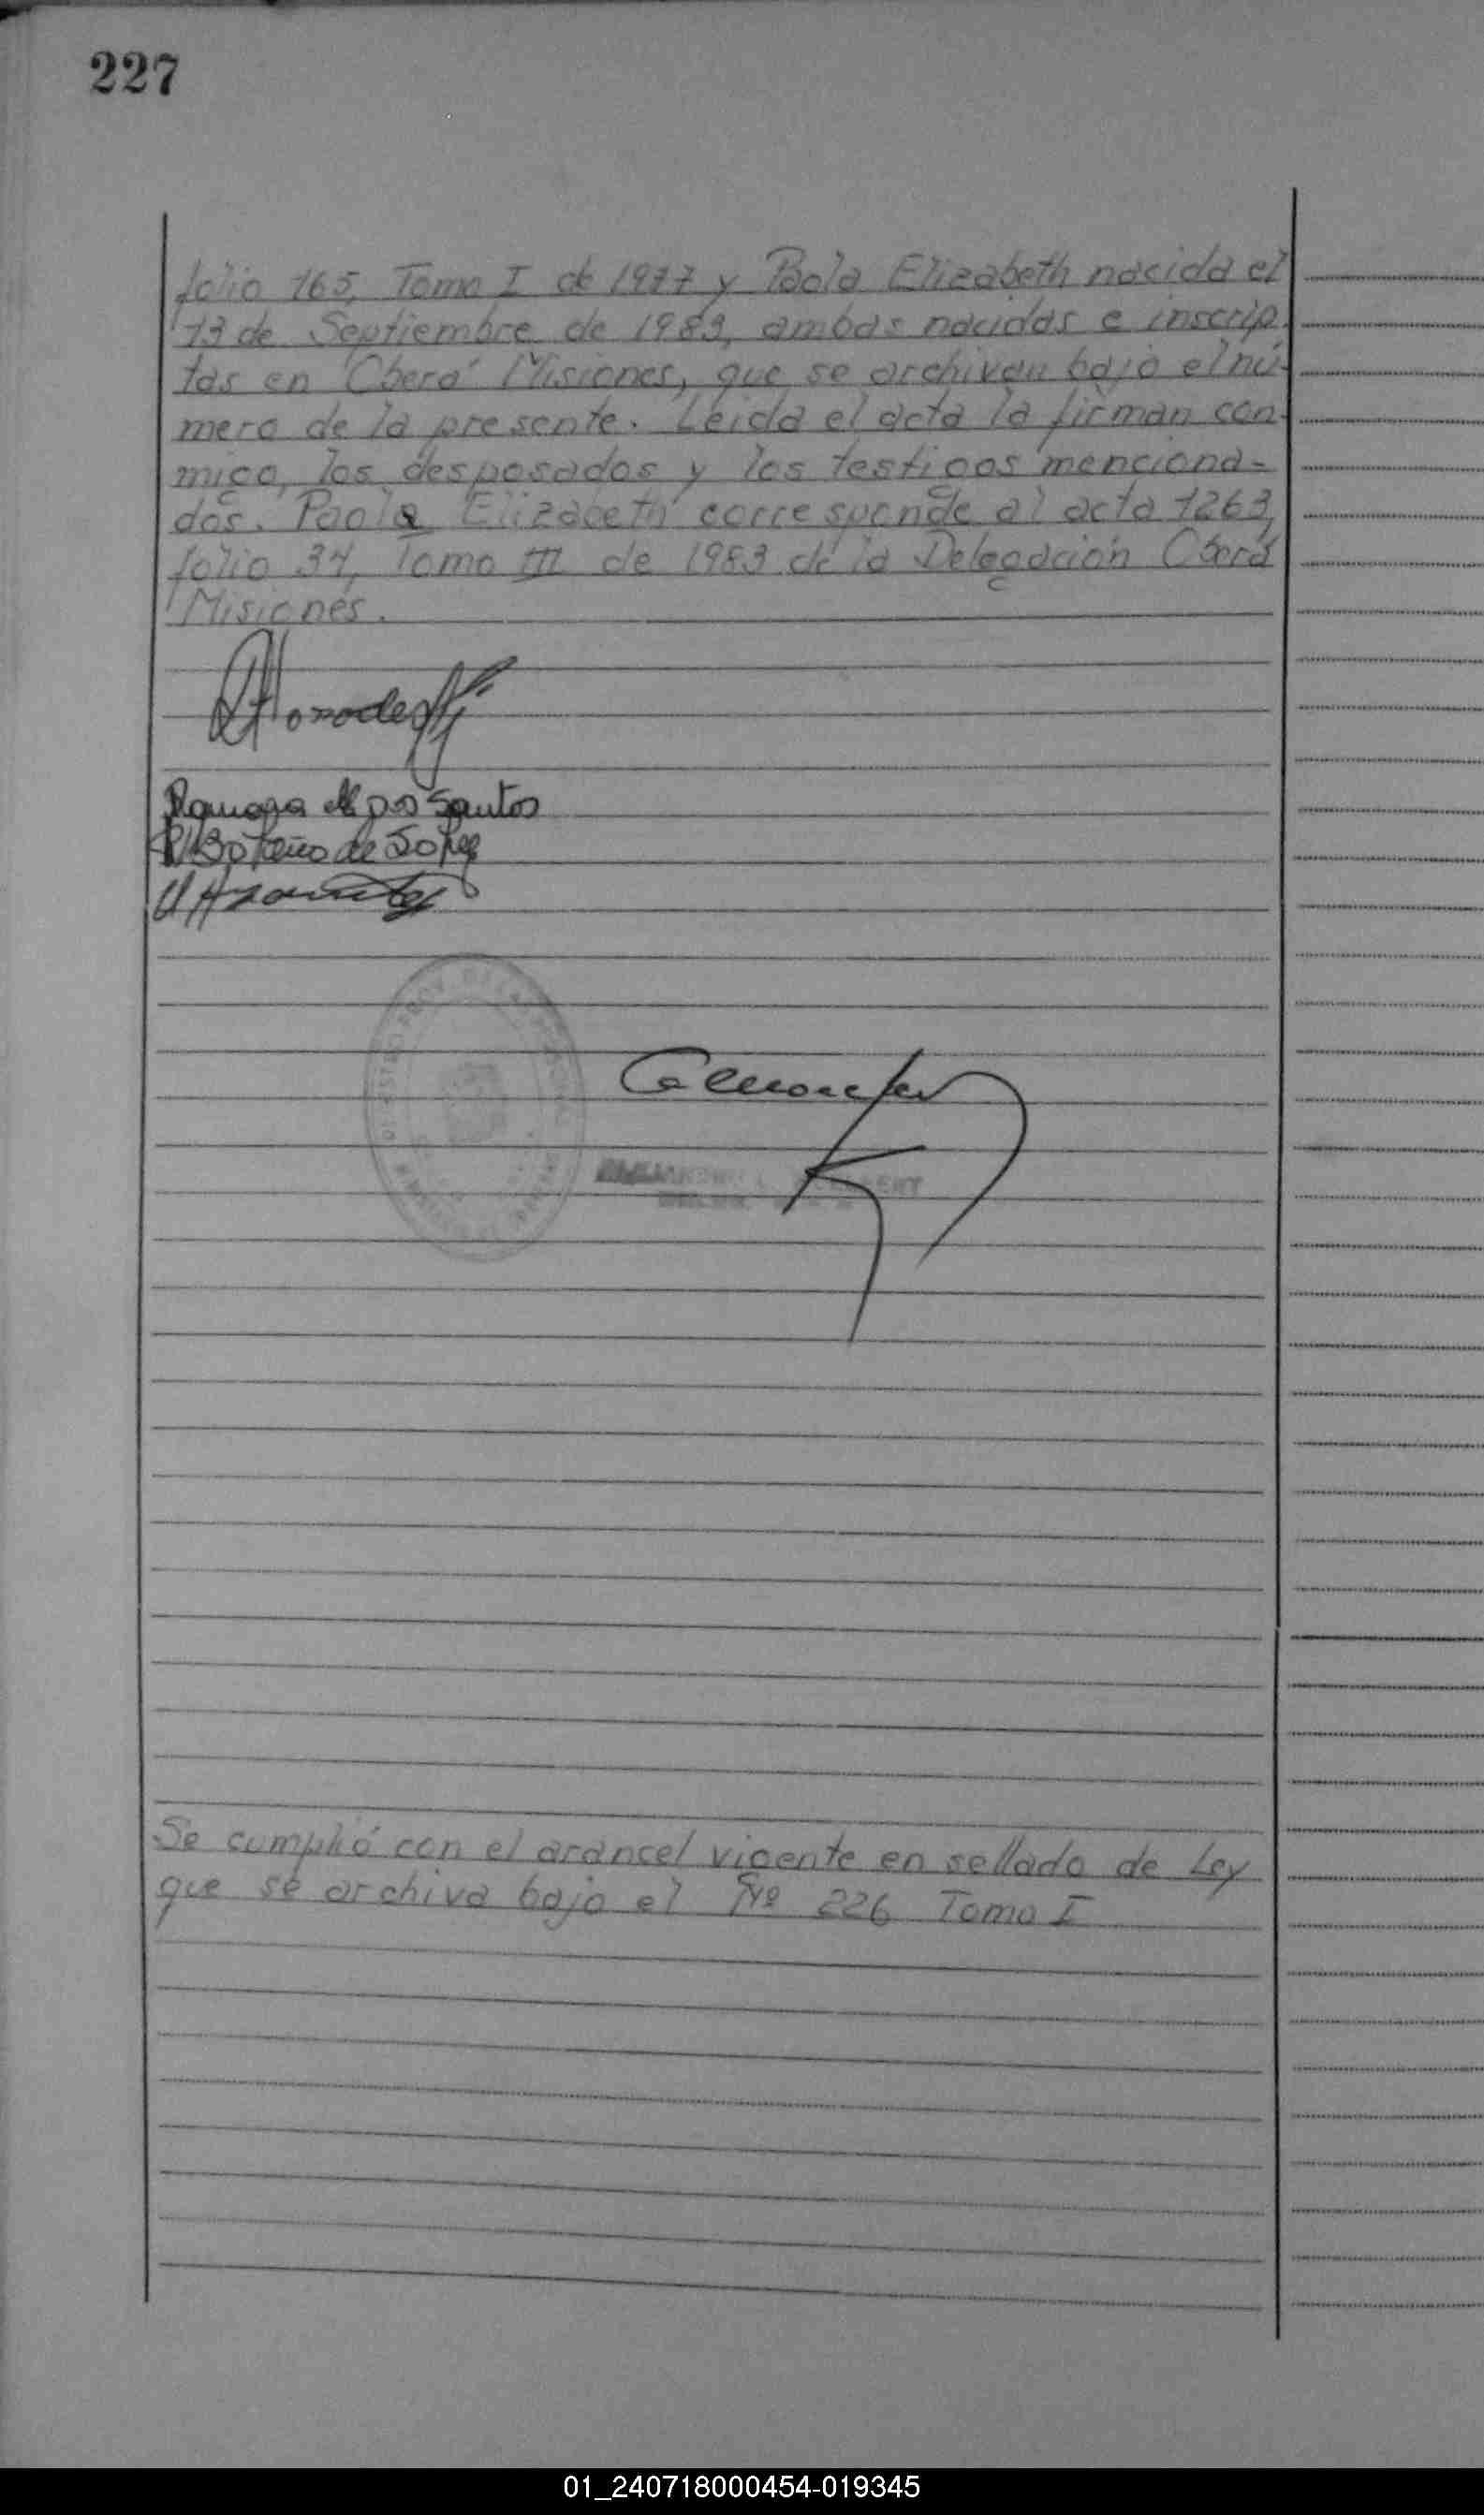 227
folio 165, Tomo I de 1977 y Paola Elizabeth nacida el
13 de Septiembre de 1983, ambas nacidas e inscrip-
tas en Oberá Misiones, que se archivan bajo el nú-
mero de la presente. Leida el acta la firman con-
migo, los desposados y los testigos menciona-
dos. Paola Elizabeth corresponde al acta 1263,
folio 34, Tomo III de 1983 de la Delegación Oberá
Misiones.
Ramona Dos Santos
de Lopez
Se cumplió con el arancel vigente en sellado de Ley
que se archiva bajo el Nº 226 Tomo I
01_240718000454-019345